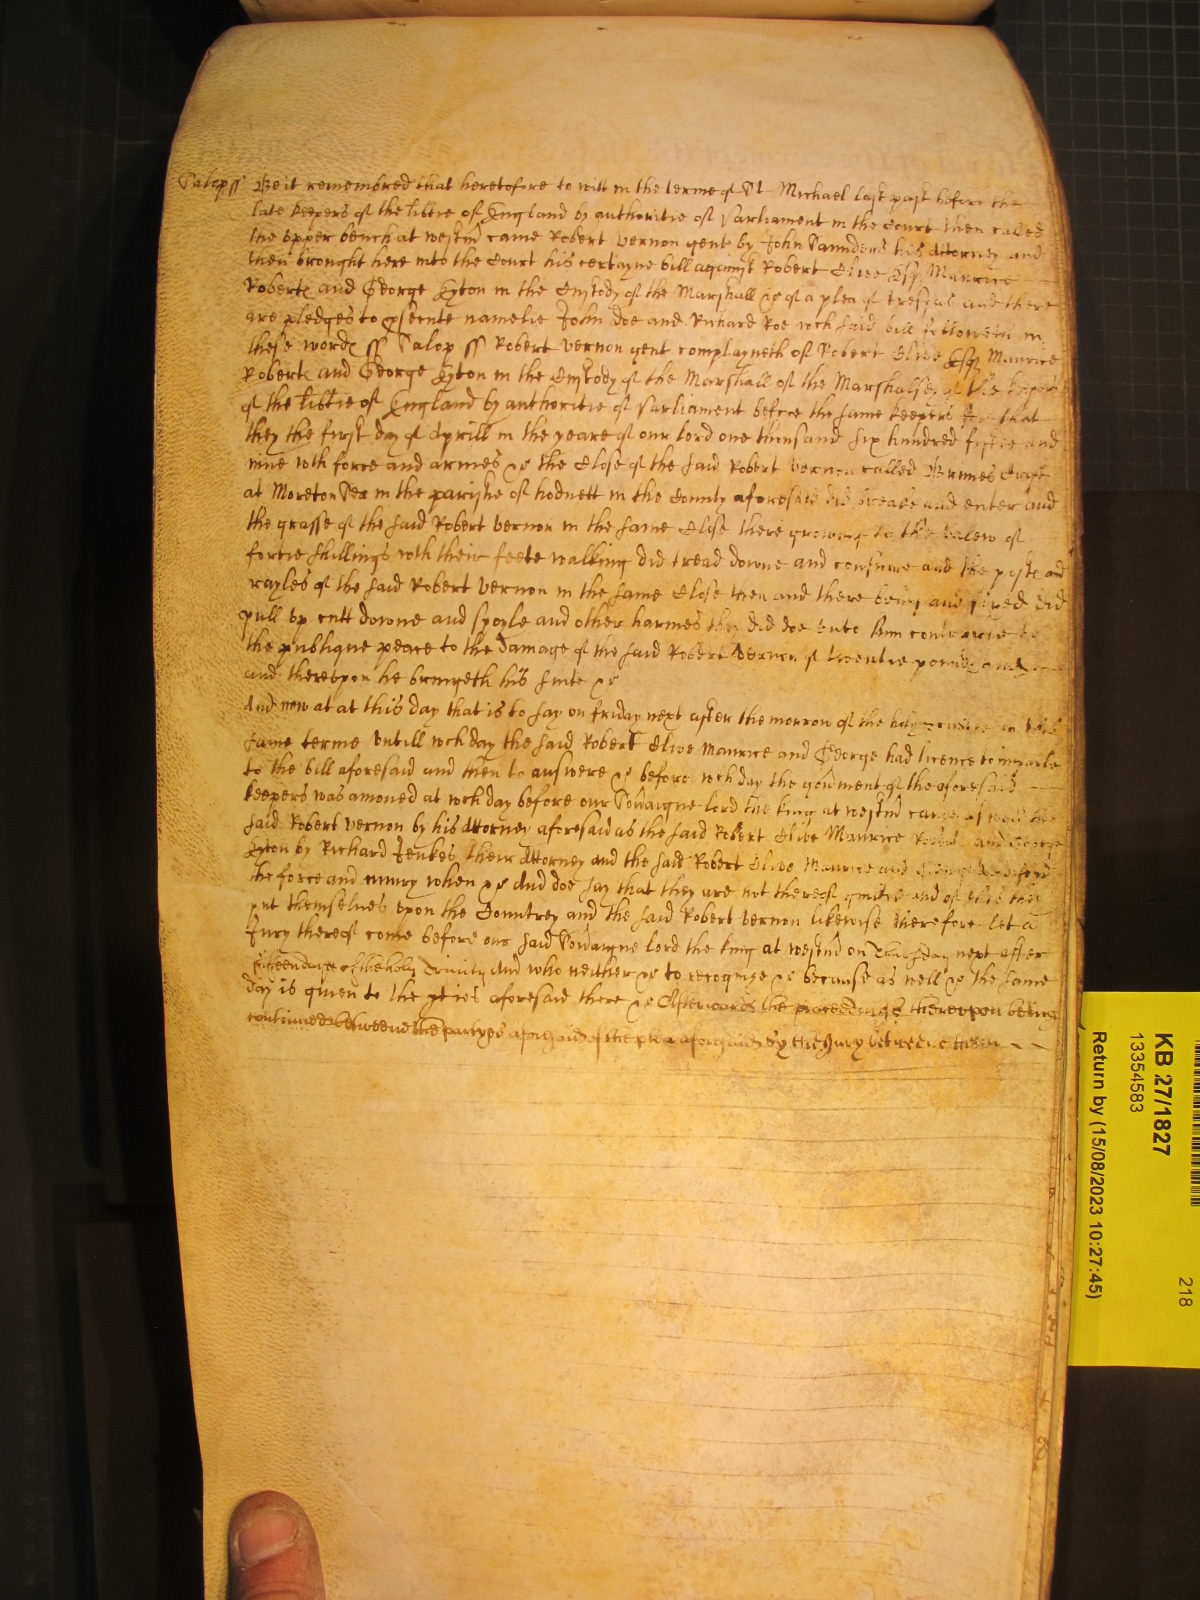 Salop ss Be it remembred that heretofore to witt in the terme of St Michael last past before the
late keepers of the libtie of England by authoritie of Parliament in the Court then called
the upper bench at westm came Robert Vernon gent by John Saunders his Attorney and
then brought here into the Court his certayne bill against Robert Clive Esq Maurice
Robertes and George Eyton in the Custody of the Marshall &c of a plea of trespas and there
are pledges to psecute namelie John Doe and Richard Roe wch said bill followeth in
these wordes ss Salop ss Robert Vernon gent complayneth of Robert Clive Esq Maurice
Robertes and George Eyton in the Custody of the Marshall of the Marshalsey of the keepers
of the libtie of England by authoritie of Parliament before the same keepers for that
they the first day of Aprill in the yeare of our lord one thousand six hundred fiftie and
nine wth force and armes &c the Close of the said Robert Vernon called
at Moreton Sea in the parishe of hodnett in the County aforesaid did breake and enter and
the grasse of the said Robert Vernon in the same Close there growing to the valew of
fortie shillings wth their feete walking did tread downe and consume and the postes and
rayles of the said Robert Vernon in the same Close then and there being and fixed did
pull up cutt downe and spoyle and other harmes they did doe unto him contrarie to
the publique peace to the damage of the said Robert Vernon of twentie poundes and
and thereupon he bringeth his suite &c
And now at at this day that is to say on friday next after the morrow of the holy Trinitie in this
same terme untill wch day the said Robert Clive Maurice and George had licence to imparle
to the bill aforesaid and then to answere &c before wch day the govment of the aforesaid
keepers was amoued at wch day before our Sovaigne lord the king at westm came as well the
said Robert Vernon by his Attorney aforesaid as the said Robert Clive Maurice Robertes and George
Eyton by Richard Jeukes their Attorney and the said Robert Clive Maurice and George doe defend
the force and iniury when &c And doe say that they are not thereof guiltie and of this they
put themselues upon the Countrey and the said Robert Vernon likewise Therefore let a
Jury thereof come before our said Sovaigne lord the king at westm on Thursday next after
fifteen dayes of the holy Trinity And who neither &c to recognise &c because as well &c the same
day is giuen to the pties aforesaid there &c Afterwards the proceedings thereupon being
continued betweene the partyes aforesaid of the plea aforesaid by the Jury betweene them
KB 27/1827
13354583
Return by (15/08/2023 10:27:45)
218